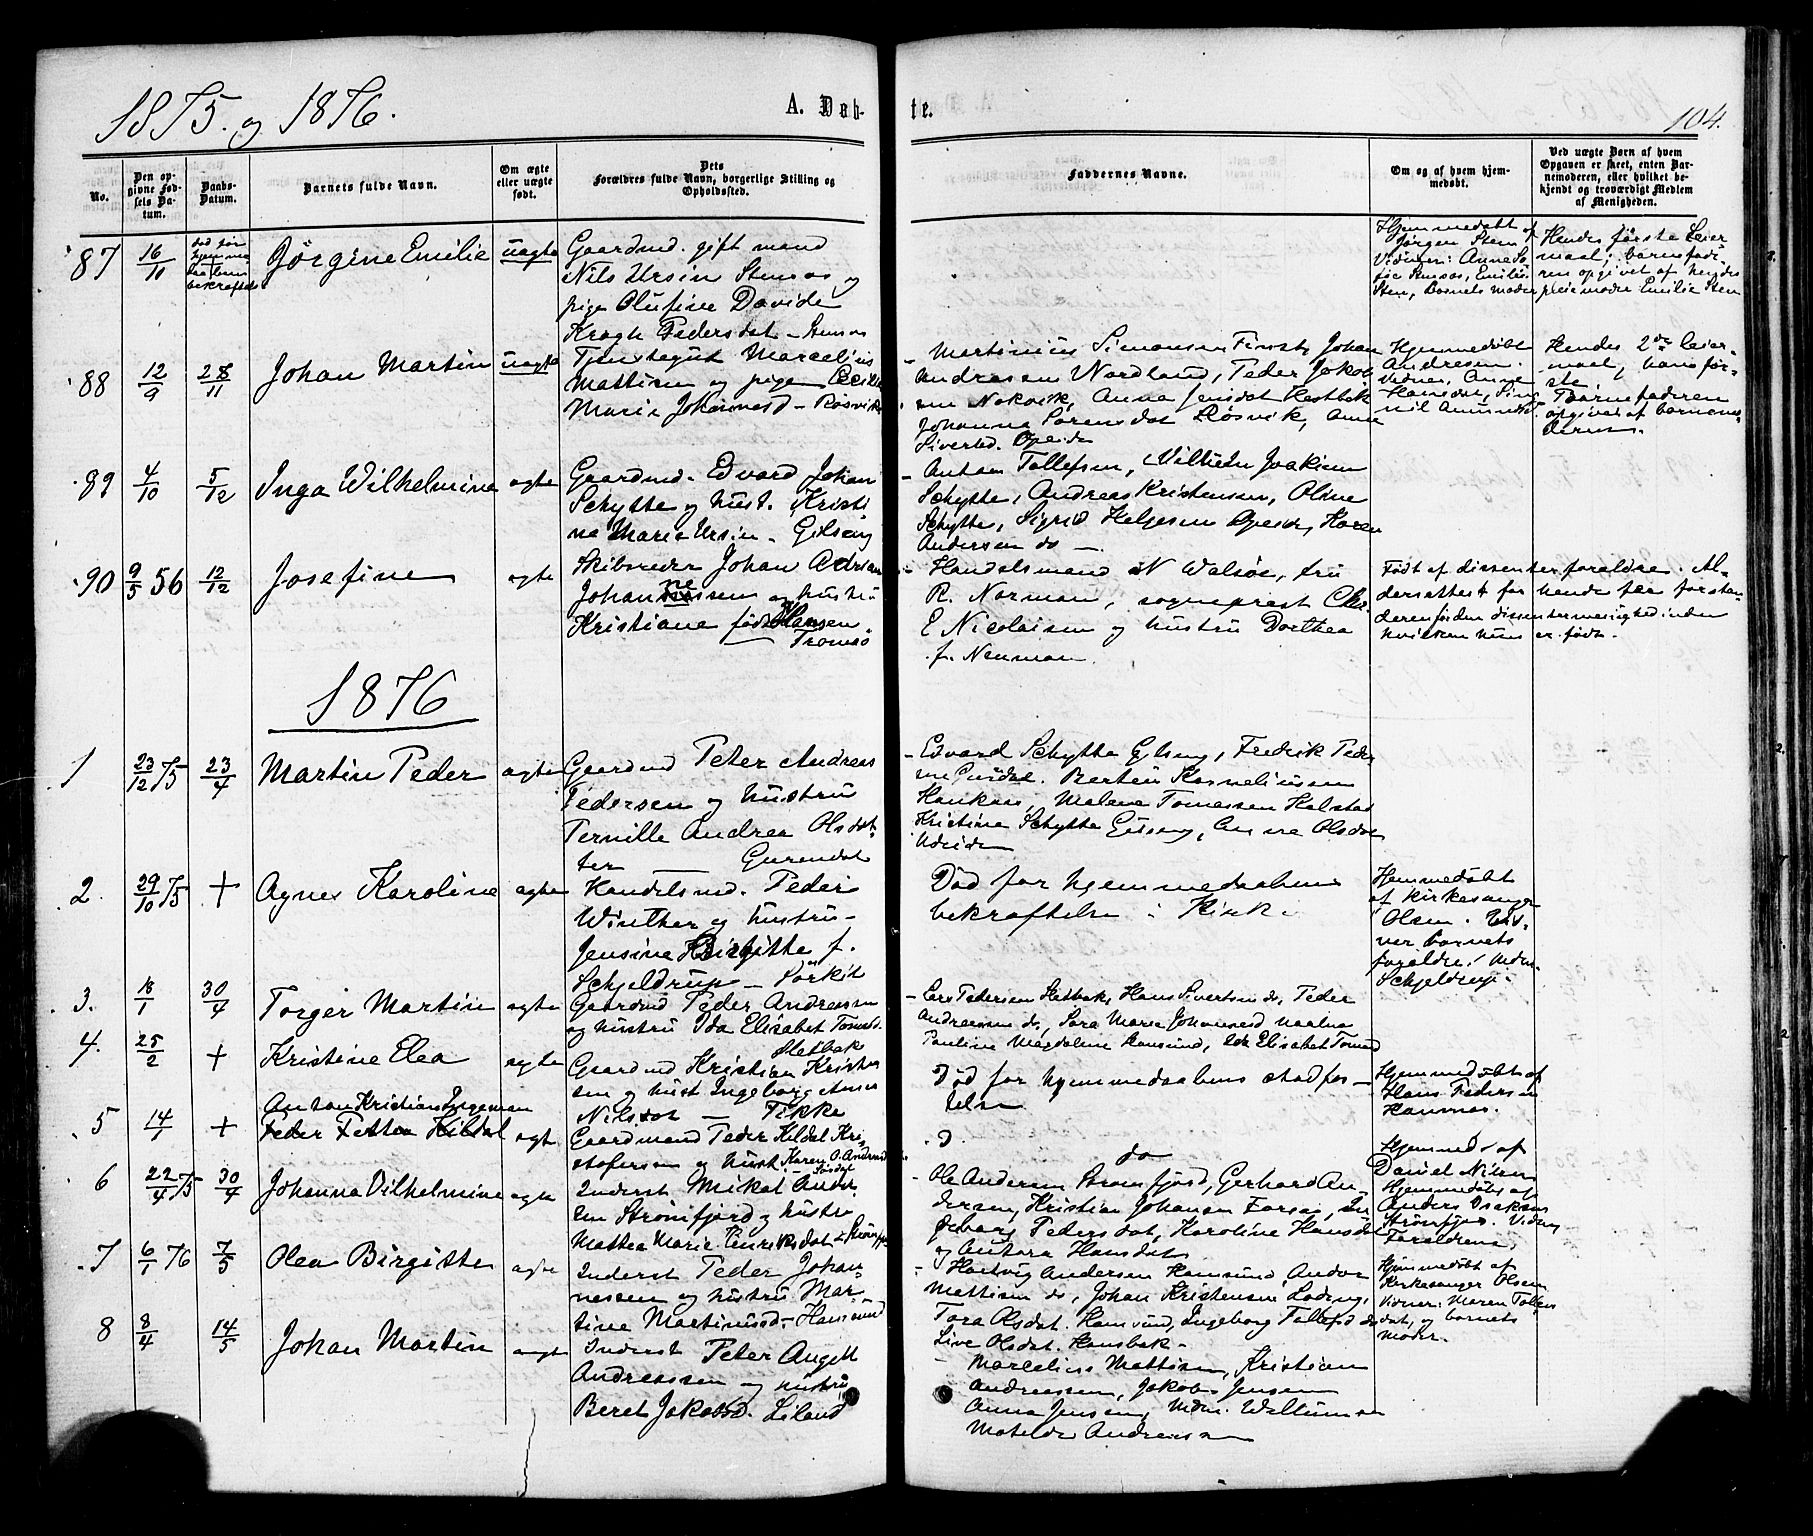 1875 og 1876.
A. Døb-
te.
104.
No.
Den op-
givne Fød-
sels Da-
tum.
Daabs-
Datum.
Barnets fulde Navn.
Om ægte
eller uægte
født.
Dets
Forældres fulde Navn, borgerlige Stilling og
Opholdssted.
Faddernes Navne.
Om og af hvem hjem-
medøbt.
Ved uægte Børn af hvem
Opgaven er skeet, enten Bar-
nemoderen, eller hvilket be-
kjendt og troværdigt Medlem
af Menigheden.
87
16/11
Død før
hjemme
daabens
bekræftels
Jørgine Emilie
uægte
Gaardmd. gift mand
Nils Ursin Stensos og
pige Olufine Davide
Krogh Pedersdat – Stensos
Hjemmedøbt af
Jørgen Sten,
Vidner: Anne
Stensos, Emilie
Sten, Barnets moder
Hendes første Leier-
maal; barnefade-
ren opgivet af hendes
pleiemoder Emilie Sten
88
12/9
28/11
Johan Martin
uægte
Tjenstegut Marcelius
Mattisen og pige Cecilie
Marie Johannesd – Røsvik
– Martinius Simonsen Finst, Johan
Andreasen Nordland, Peder Jakob-
sen Nokvik, Anna Jensdat Hestbak
Johanna Sørensdat Røsvik, Anne
Sivertsd. Opeide
Hjemmedøbt
Andreasen.
Vidner, Anne
Hansdat,
Hendes 2det Leier-
maal, hans før-
ste.
– Barnefaderen
opgivet af barnemo-
deren.
89
4/10
5/12
Inga Wilhelmine
ægte
Gaardmd. Edvard Johan
Schytte og hust. Kristi
ne Marie Ursin – Gilsæng
– Anton Tollefsen, Vilhelm Joakim
Schytte, Andreas Kristensen, Oline
Schytte, Sigrid Helgesen Opeide, Karen
Andersen do –
90
9/5 56
12/12
Josefine
ægte
Skibsreder Johan Adrian
Johannesen og hustru
Kristiane født Hansen
Tromsø
– Handelsmand N Walsøe, fru
R. Norman, sogneprest Chr.
E Nicolaisen og hustru Dorthea
f. Neuman.
Født af dissenterforældre. Al-
dersattest for hende fra forstan-
deren for den dissentermenighed inden
hvilken hun er født.
1876
1
23/12 75
23/4
Martin Peder
ægte
Gaardmd Peter Andreas
Pedersen og hustru
Pernille Andrea Olsdat-
ter – Gurendal
– Edvard Schytte Gilsæng, Fredrik Peder
sen Gurdal. Berten Kornelius­sen
Haukaas, Malene Tomassen Kalstad
Kristine Schytte Gilsæng, Anne Olsdat
2.
29/10 75
+
Agnes Karoline
ægte
Handelsmd. Peder
Winther og hustru
Jensine Birgitte f.
Schjeldrup – Sørkil
Død før hjemmedaabens
bekræftelse i Kirk.
Hjemmedøbt
af kirkesanger
Olsen. Vid-
ner barnets
forældre,
Schjeldrup.
3.
18/1
30/4
Torger Martin
ægte
Gaardmd Peder Andreassen
og hustru Ida Elisabet Tomasd.
Sletbak
– Lars Pedersen Sletbak, Hans Sivertsen do, Peder
Andreassen do, Sara Marie Johannesd
Pauline Magdalene Hamsund, Ida Elisabet Tomasd
4.
25/2
+
Kristine Elea
ægte
Gaardmd Kristian Kristian
sen og hust Ingeborg Anna
Nilsdat – Fikke
Død før hjemmedaabens stadfæs-
telse
Hjemmedøbt af
Hans Pedersen
Hamnes.
5
14/1
+
Anton Kristian Ingeman
Peder Petter Kildal
ægt.
Gaardmand Peder Kildal Kri
stofersen og hust. Karen O. Andersd
D. do
Hjemmed. af
Daniel Nilsen
6
22/4 75
30/4
Johanna Vilhelmine
ægte
Inderst Mikal Ander
sen Strømfjord og hustru
Mattea Marie Henriksdat
– Ole Andersen Strømfjord, Gerhard An-
dersen, Kristian Johansen Forsaa, In
geborg Pedersdat, Karoline Hansdat
og Antora Hansdat
Hjemmedøbt af
Anders Isaksen
Strømfjor. Vidner
Forældrene
7
6/1 76
7/5
Olea Birgitte
ægte
Inderst Peder Johan-
nessen og hustru Mar
tine Martinusd – Hamsund
– Hartvig Andersen Hamsund, Andor
Mattisen do, Johan Kristensen Løding,
Tora Olsdat. Hamsund, Ingeborg Tollefsd do
Live Olsdat. Hansbak –
Hjemmedøbt af
Kirkesanger Olsen
Vidner: Maren Tollefs
dat, og barnets
moder.
8
8/4
14/5
Johan Martin
ægt
Inderst Peter Angell
Andreassen og hustru
Beret Jakobsd. Liland
– Marcelius Mattisen, Kristian
Andreassen, Jakob Jensen
Anna Jensen,
Matilde Andreassen